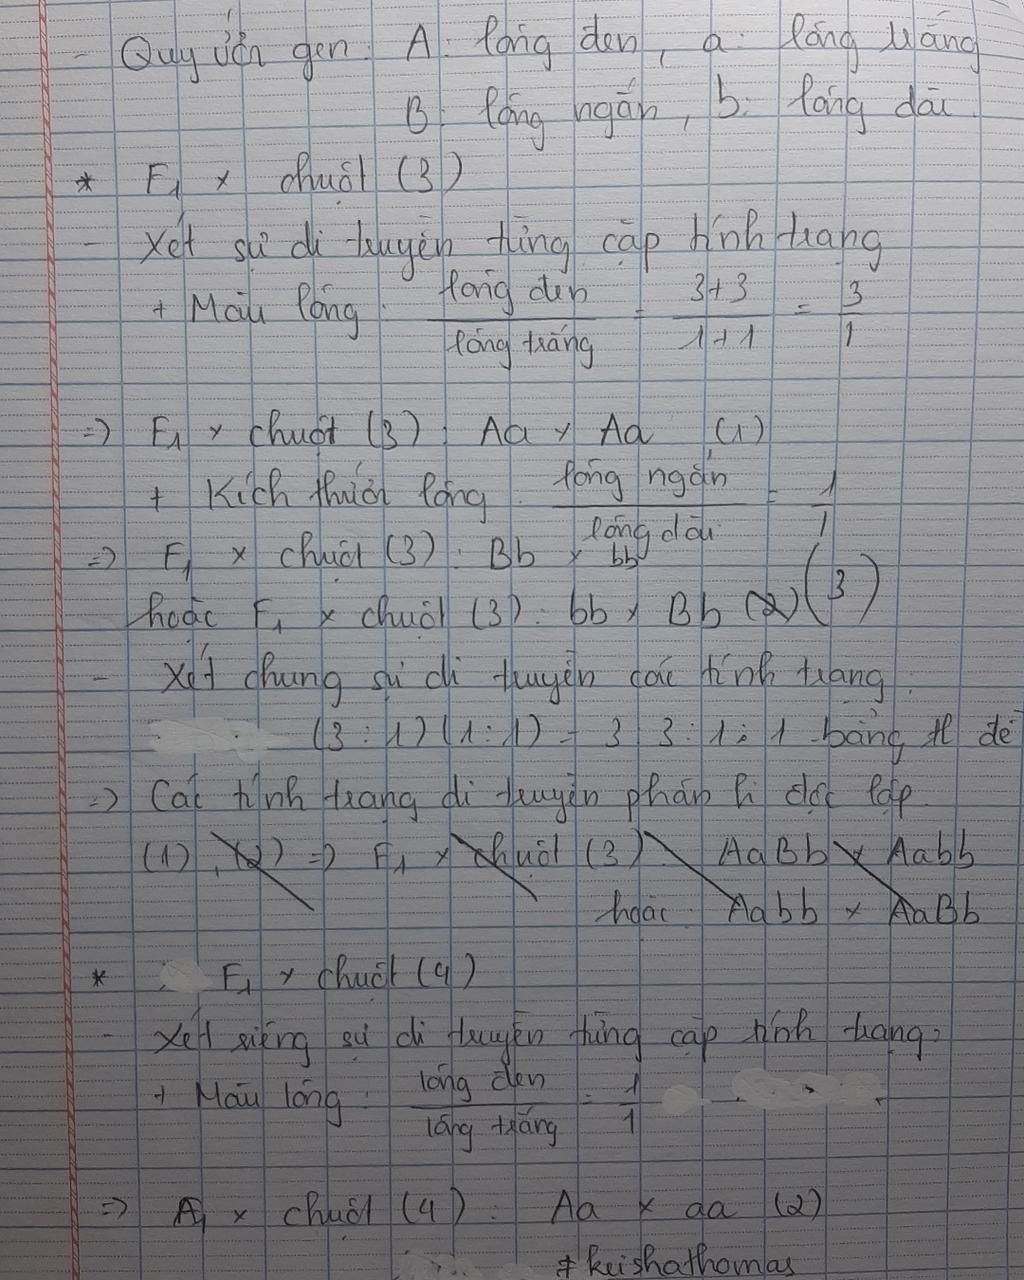 - Quy ước gen: A: lông đen, a: lông trắng
B: lông ngắn, b: lông dài
* F1 x chuột (3)
- Xét sự di truyền từng cặp tính trạng
+ Màu lông: lông đen / lông trắng = 3+3 / 1+1 = 3 / 1
=> F1 x chuột (3): Aa x Aa (1)
+ Kích thước lông: lông ngắn / lông dài = 1 / 1
=> F1 x chuột (3): Bb x bb
hoặc F1 x chuột (3): bb x Bb (2) (3)
- Xét chung sự di truyền các tính trạng:
(3:1)(1:1) = 3:3:1:1 bằng tl đề
=> Các tính trạng di truyền phân li độc lập
(1), (2) => F1 x chuột (3): AaBb x Aabb
hoặc Aabb x AaBb
* F1 x chuột (4)
- Xét riêng sự di truyền từng cặp tính trạng:
+ Màu lông: lông đen / lông trắng = 1 / 1
=> F1 x chuột (4): Aa x aa (2)
#keishathomas